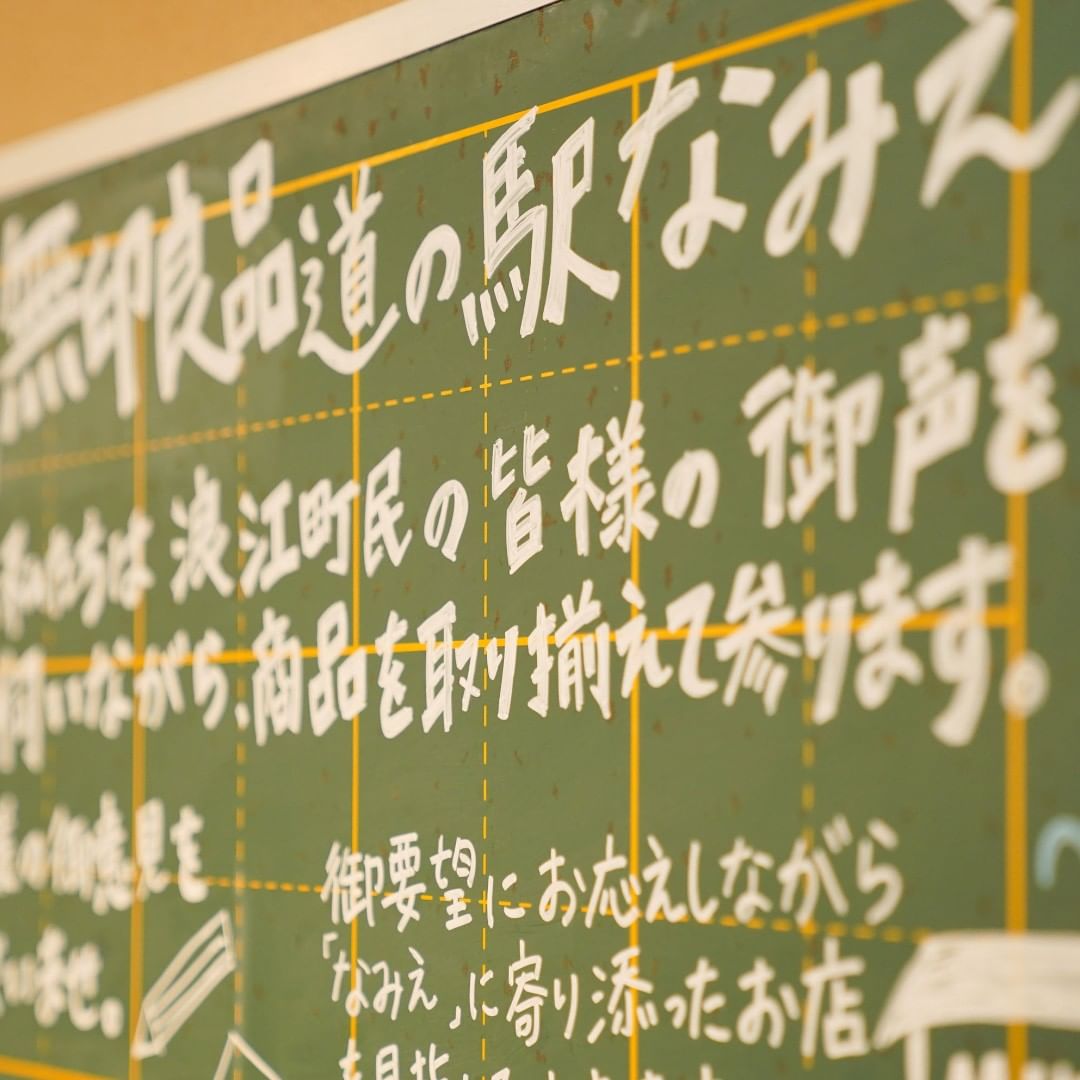 無印良品道の駅なみえ
私たちは浪江町民の皆様の御声を
伺いながら、商品を取り揃えて参ります。
の御意見を
せ。
御要望にお応えしながら
「なみえ」に寄り添ったお店
を目指し